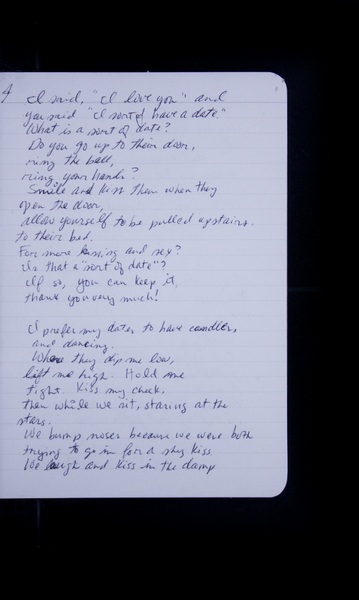 4
I said, "I love you" and
you said "I sort of have a date."
What is a sort of date?
Do you go up to their door,
ring the bell,
wring your hands?
Smile and kiss them when they
open the door,
allow yourself to be pulled upstairs.
to their bed.
For more kissing and sex?
Is that a "sort of date"?
If so, you can keep it,
thank you very much!
I prefer my dates to have candles,
and dancing.
Where they dip me low,
lift me high. Hold me
tight. Kiss my cheek.
Then while we sit, staring at the
stars.
We bump noses because we were both
trying to go in for a shy kiss.
We laugh and kiss in the damp